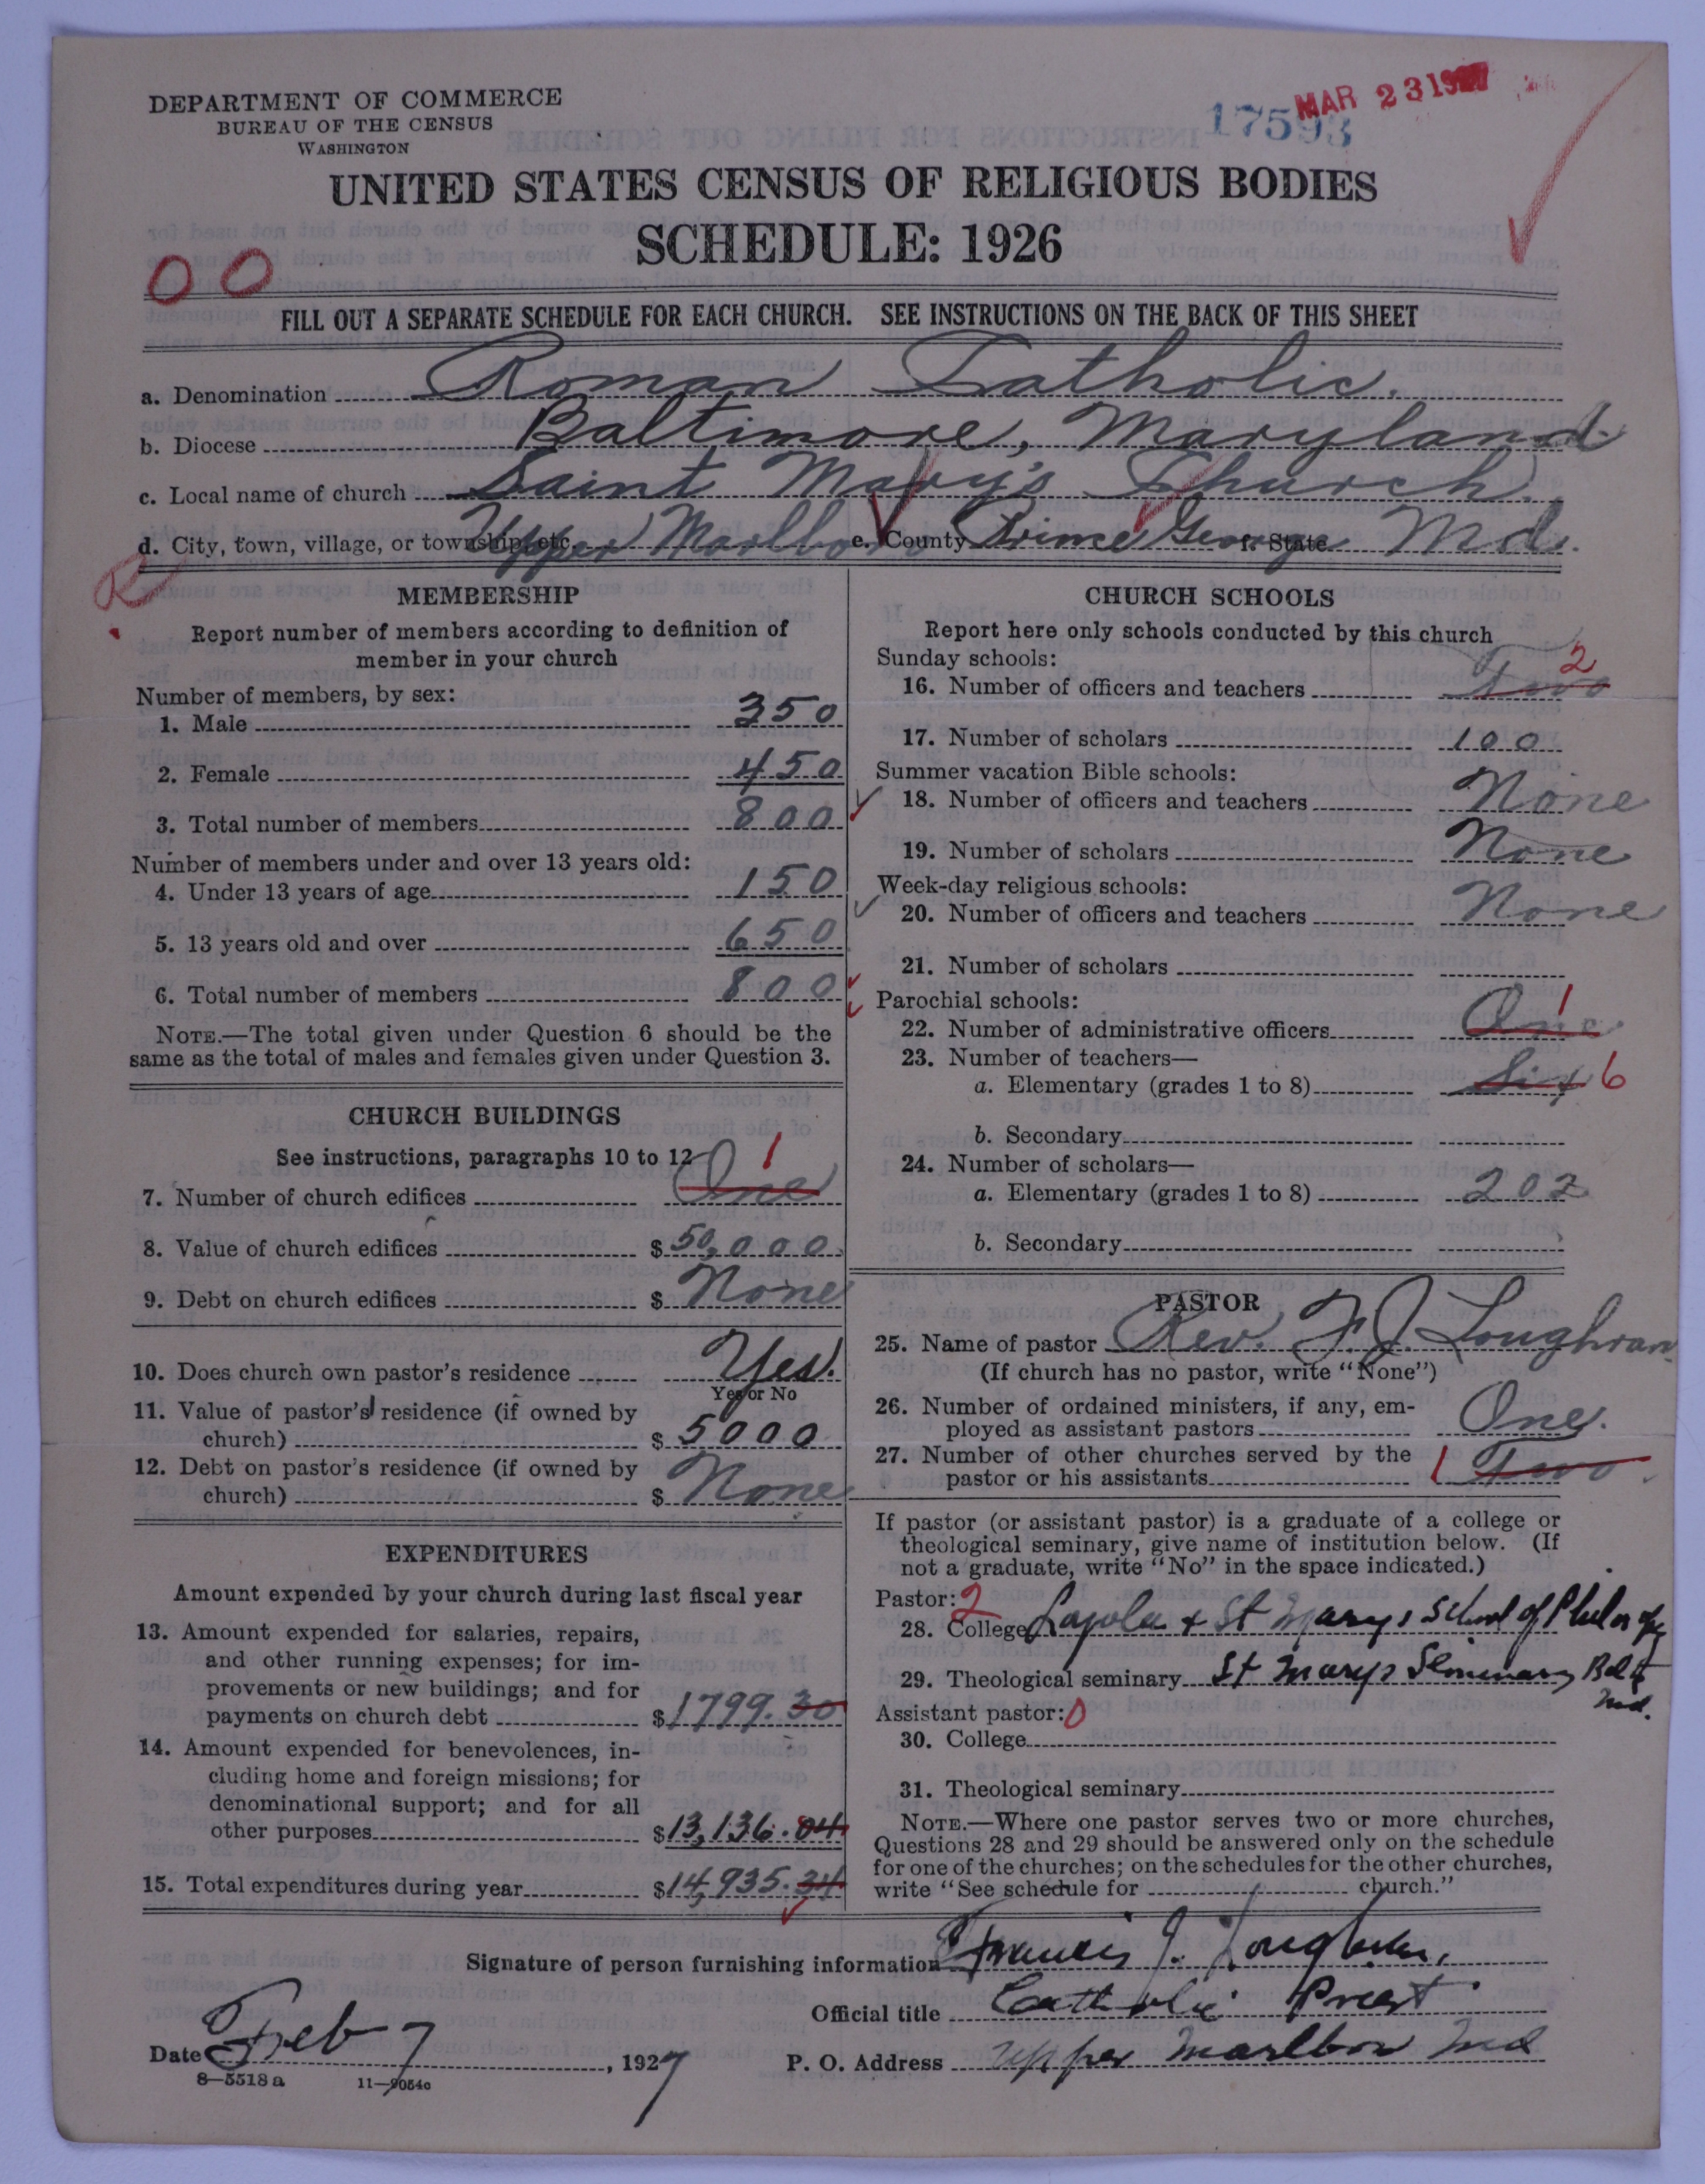 DEPARTMENT OF COMMERCE
BUREAU OF THE CENSUS
WASHINGTON
17593
MAR 23 1927
UNITED STATES CENSUS OF RELIGIOUS BODIES
SCHEDULE: 1926
00
FILL OUT A SEPARATE SCHEDULE FOR EACH CHURCH. SEE INSTRUCTIONS ON THE BACK OF THIS SHEET
a. Denomination Roman Catholic.
b. Diocese Baltimore, Maryland.
c. Local name of church Saint Mary's Church.
d. City, town, village, or township, etc. Upper Marlboro e. County Prince George f. State Md.
R
MEMBERSHIP
Report number of members according to definition of
member in your church
Number of members, by sex:
1. Male 350
2. Female 450
3. Total number of members 800
Number of members under and over 13 years old:
4. Under 13 years of age 150
5. 13 years old and over 650
6. Total number of members 800
NOTE.—The total given under Question 6 should be the
same as the total of males and females given under Question 3.
CHURCH BUILDINGS
See instructions, paragraphs 10 to 12
7. Number of church edifices One 1
8. Value of church edifices $50,000.
9. Debt on church edifices $ None
10. Does church own pastor's residence Yes.
Yes or No
11. Value of pastor's residence (if owned by
church) $ 5000
12. Debt on pastor's residence (if owned by
church) $ None
EXPENDITURES
Amount expended by your church during last fiscal year
13. Amount expended for salaries, repairs,
and other running expenses; for im-
provements or new buildings; and for
payments on church debt $1799.30
14. Amount expended for benevolences, in-
cluding home and foreign missions; for
denominational support; and for all
other purposes $13,136.04
15. Total expenditures during year $14,935.34
CHURCH SCHOOLS
Report here only schools conducted by this church
Sunday schools:
16. Number of officers and teachers Two 2
17. Number of scholars 100
Summer vacation Bible schools:
18. Number of officers and teachers None
19. Number of scholars None
Week-day religious schools:
20. Number of officers and teachers None
21. Number of scholars
Parochial schools:
22. Number of administrative officers One 1
23. Number of teachers—
a. Elementary (grades 1 to 8) Six 6
b. Secondary
24. Number of scholars—
a. Elementary (grades 1 to 8) 202
b. Secondary
PASTOR
25. Name of pastor Rev. F. J. Loughran
(If church has no pastor, write "None")
26. Number of ordained ministers, if any, em-
ployed as assistant pastors One.
27. Number of other churches served by the
pastor or his assistants 1 Two.
If pastor (or assistant pastor) is a graduate of a college or
theological seminary, give name of institution below. (If
not a graduate, write "No" in the space indicated.)
Pastor: 2
28. College Loyola & St Marys School of Philosophy
29. Theological seminary St Marys Seminary Balt
Md.
Assistant pastor: 0
30. College
31. Theological seminary
NOTE.—Where one pastor serves two or more churches,
Questions 28 and 29 should be answered only on the schedule
for one of the churches; on the schedules for the other churches,
write "See schedule for church."
Signature of person furnishing information Francis J. Loughran,
Official title Catholic Priest
Date Feb 7, 1927 P. O. Address Upper Marlboro Md
8—5518a 11—9054c